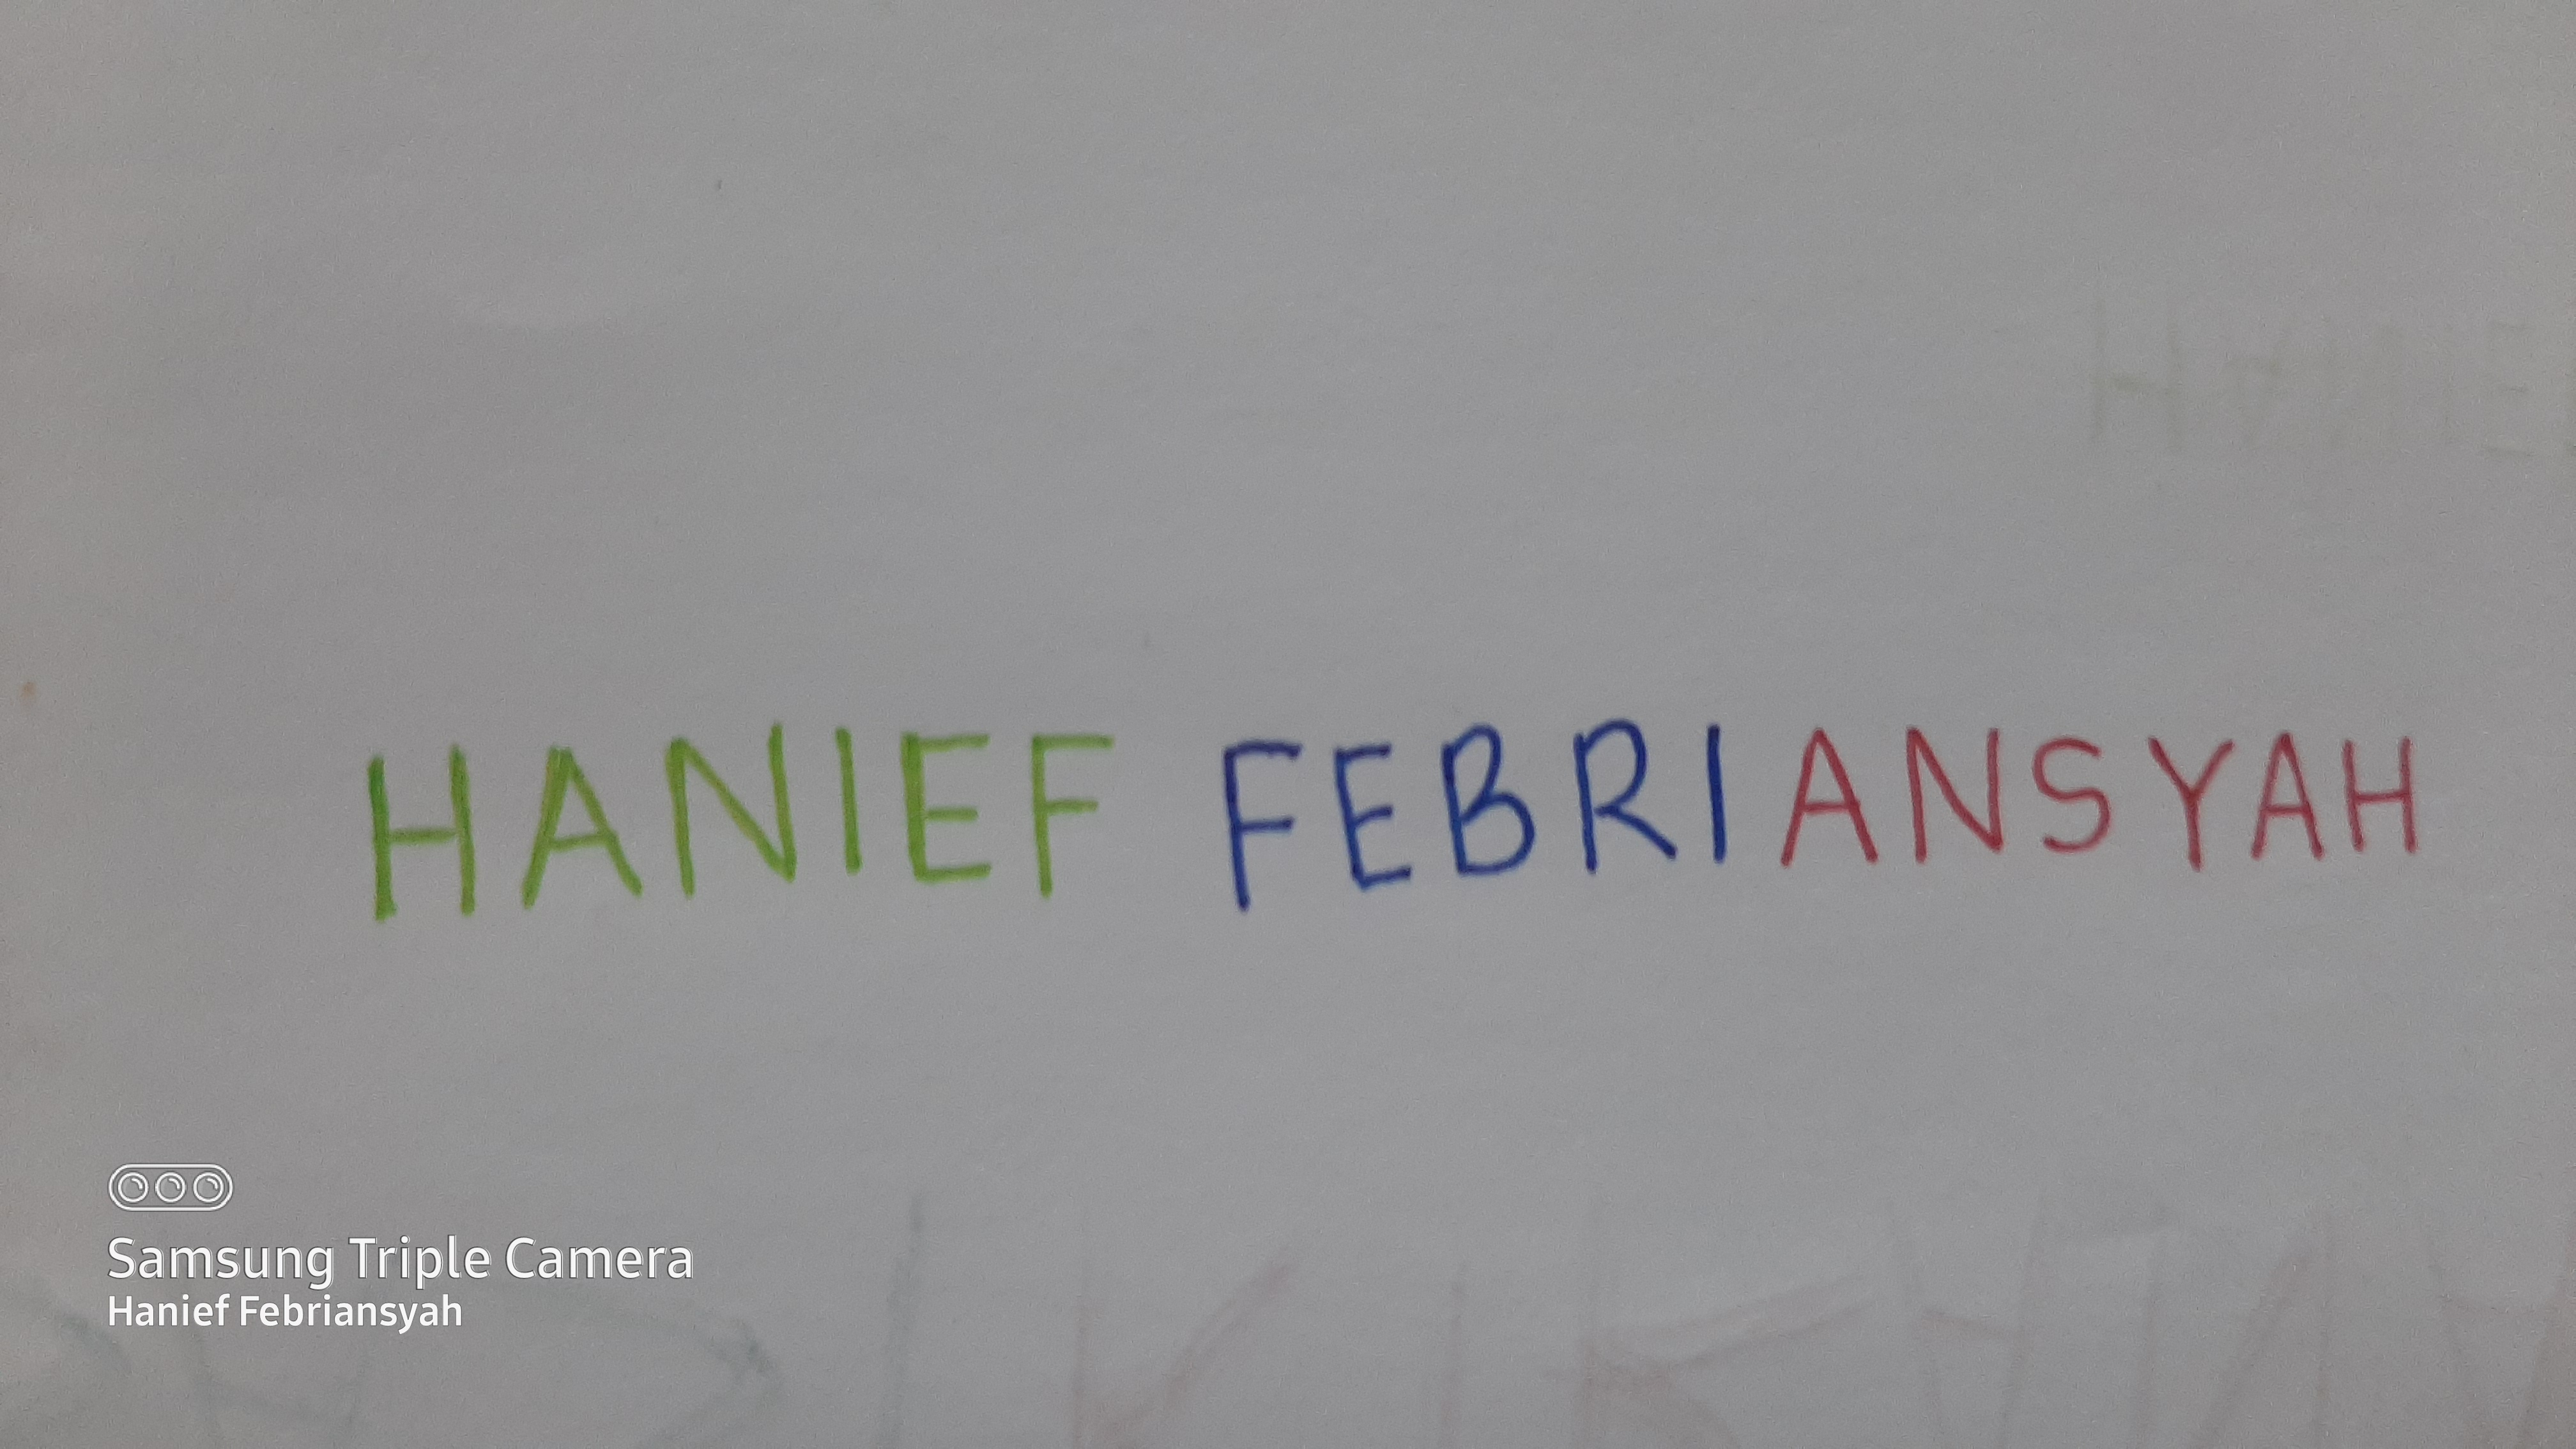 HANIEF FEBRIANSYAH
Samsung Triple Camera
Hanief Febriansyah